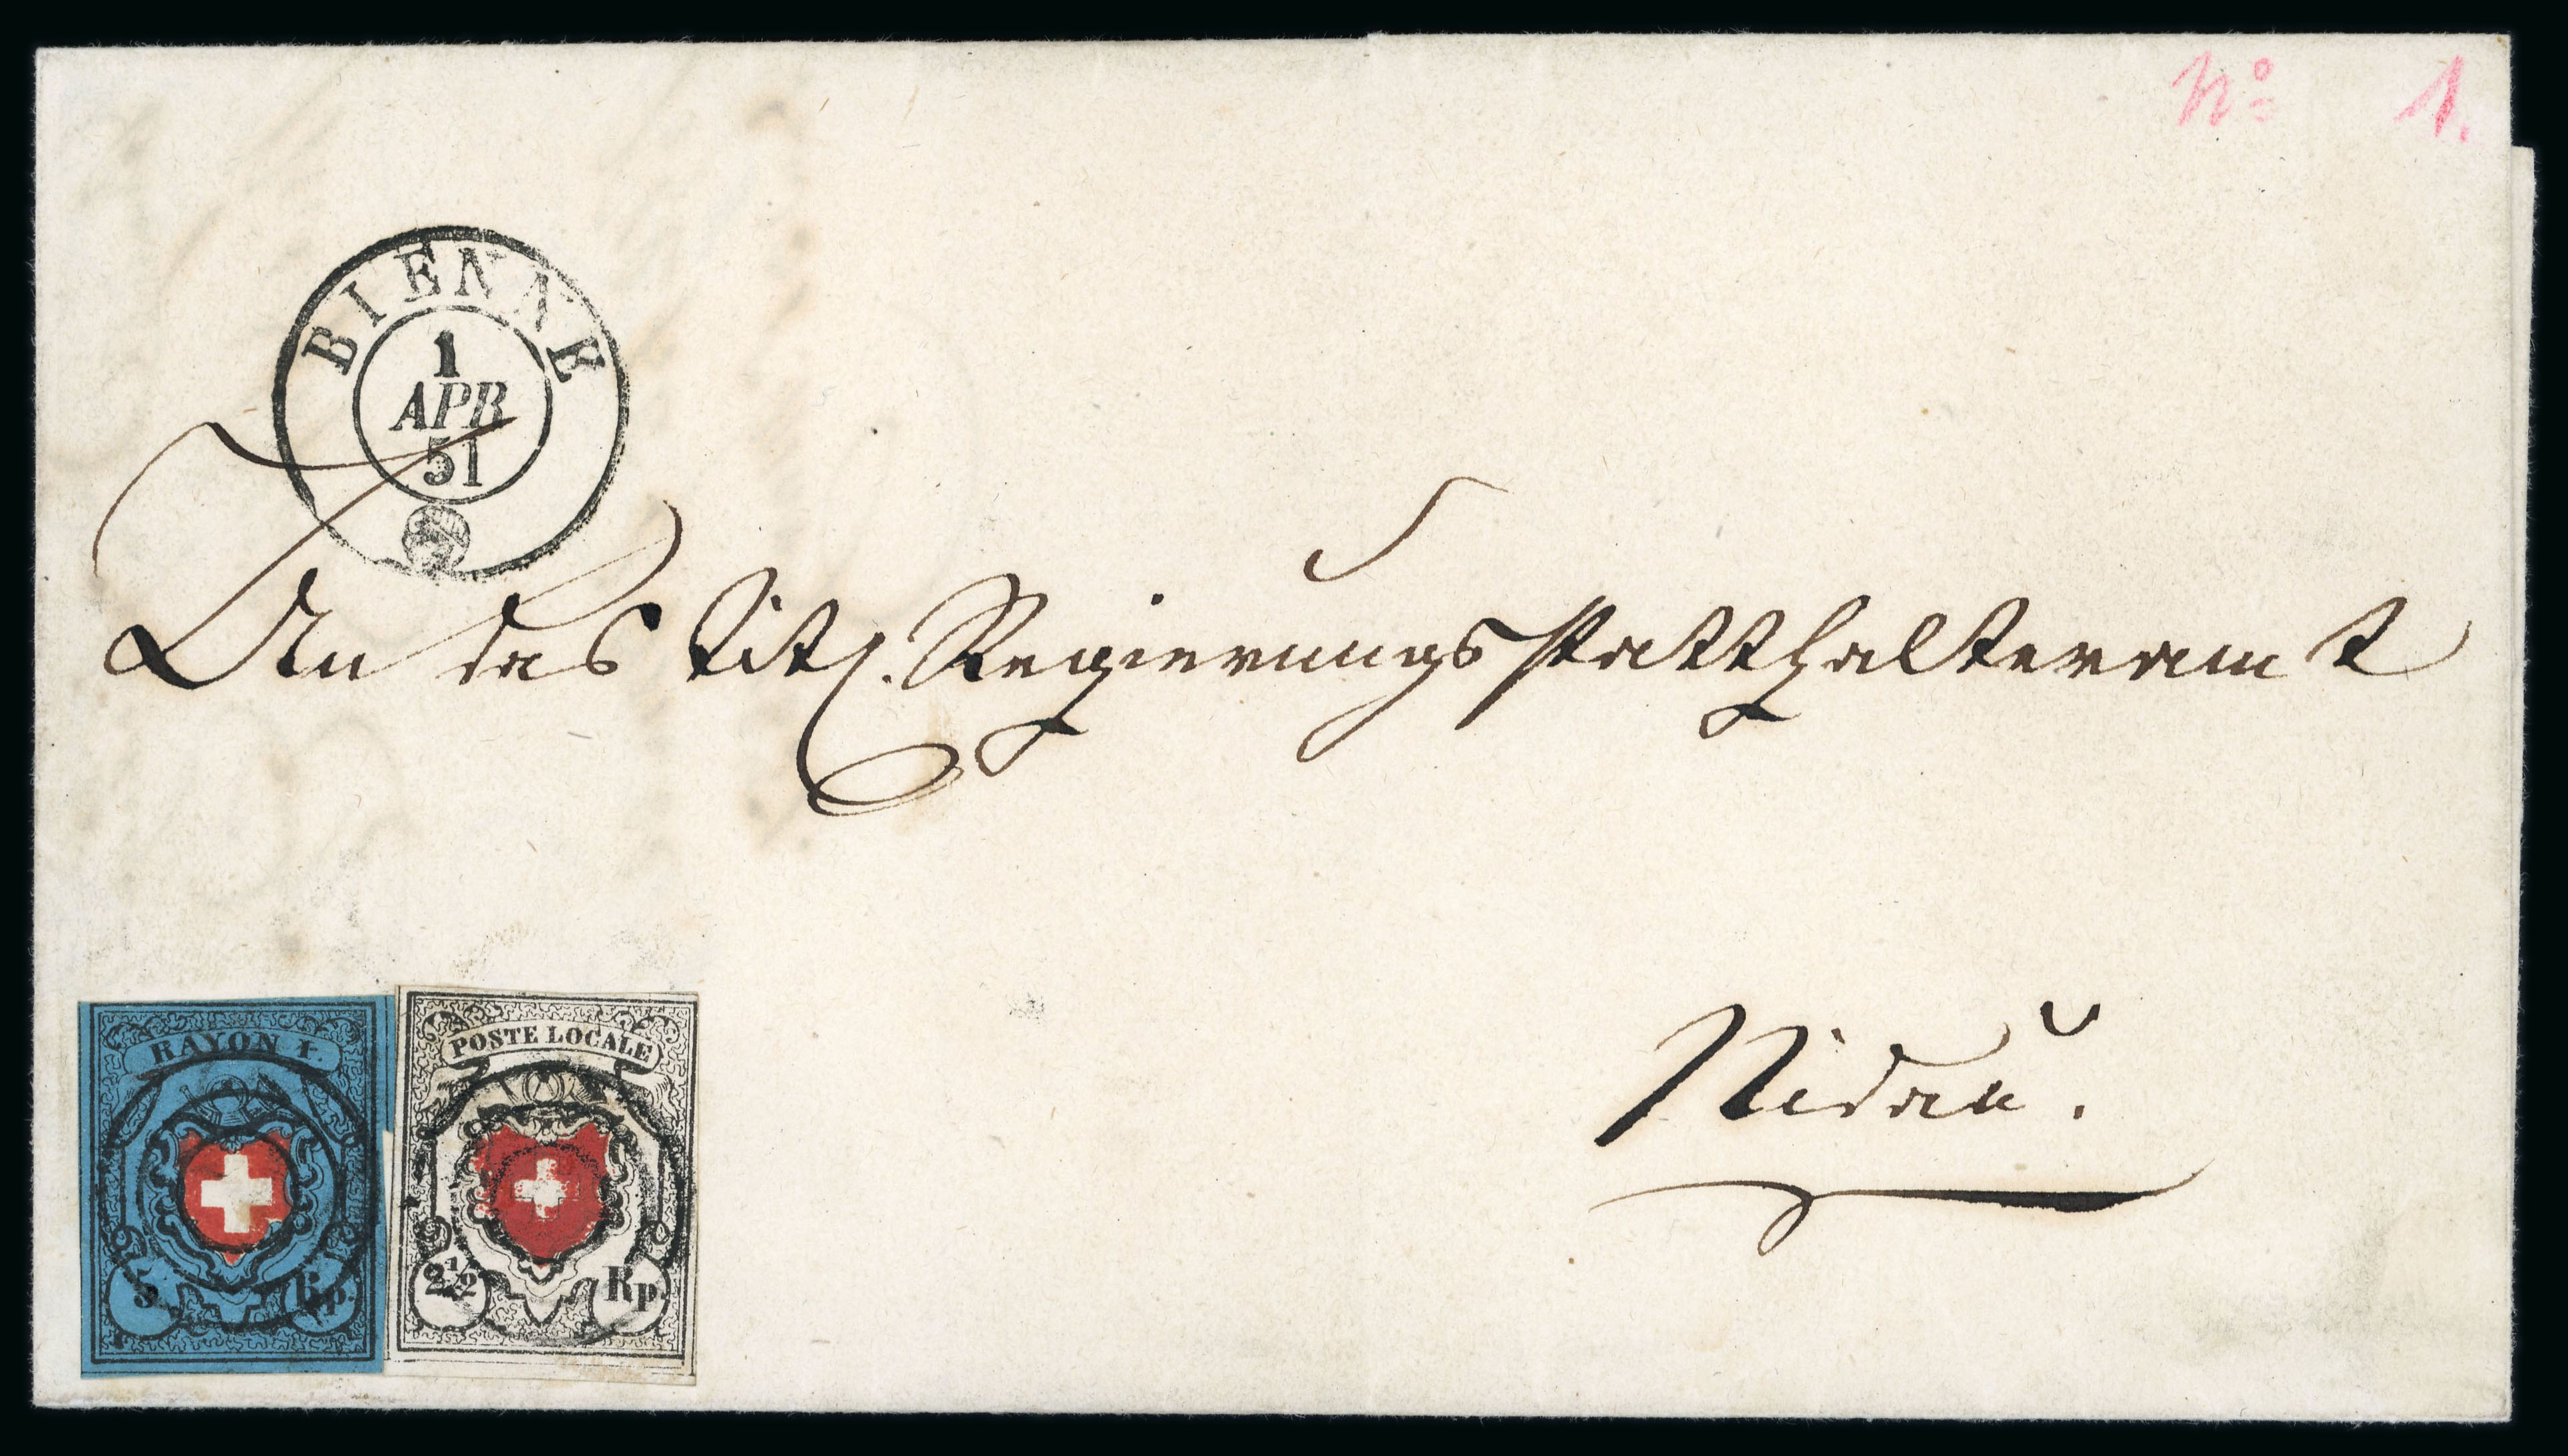 No 1.
BIENNE
1
APR
51
An das Titl. Regierungsstatthalteramt
Nidau.
RAYON I.
5 Rp.
POSTE LOCALE
2 1/2 Rp.